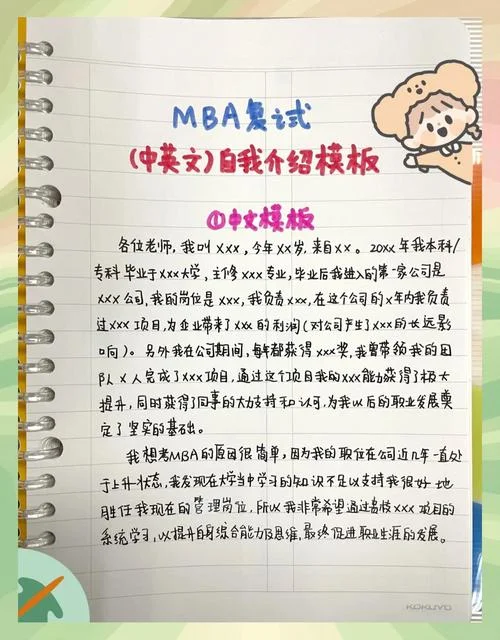 MBA复试
(中英文)自我介绍模板
①中文模板
各位老师，我叫xxx，今年xx岁，来自xx。20xx年我本科/
专科毕业于xxx大学，主修xxx专业，毕业后我进入的第一家公司是
xxx公司，我的岗位是xxx，我负责xxx，在这个公司的x年内我负责
过xxx项目，为企业带来了xxx的利润(对公司产生了xxx的长远影
响)。另外我在公司期间，每年都获得xxx奖，我曾带领我的团
队x人完成了xxx项目，通过这个项目我的xxx能力获得了极大
提升，同时获得了同事的大力支持和认可，为我以后的职业发展奠
定了坚实的基础。
我想考MBA的原因很简单，因为我的职位在公司近几年一直处
于上升状态，我发现在大学当中学习的知识不足以支持我很好地
胜任我现在的管理岗位，所以我非常希望通过贵校xxx项目的
系统学习，以提升自身综合能力及思维，最终促进职业生涯的发展。
KOKUYO